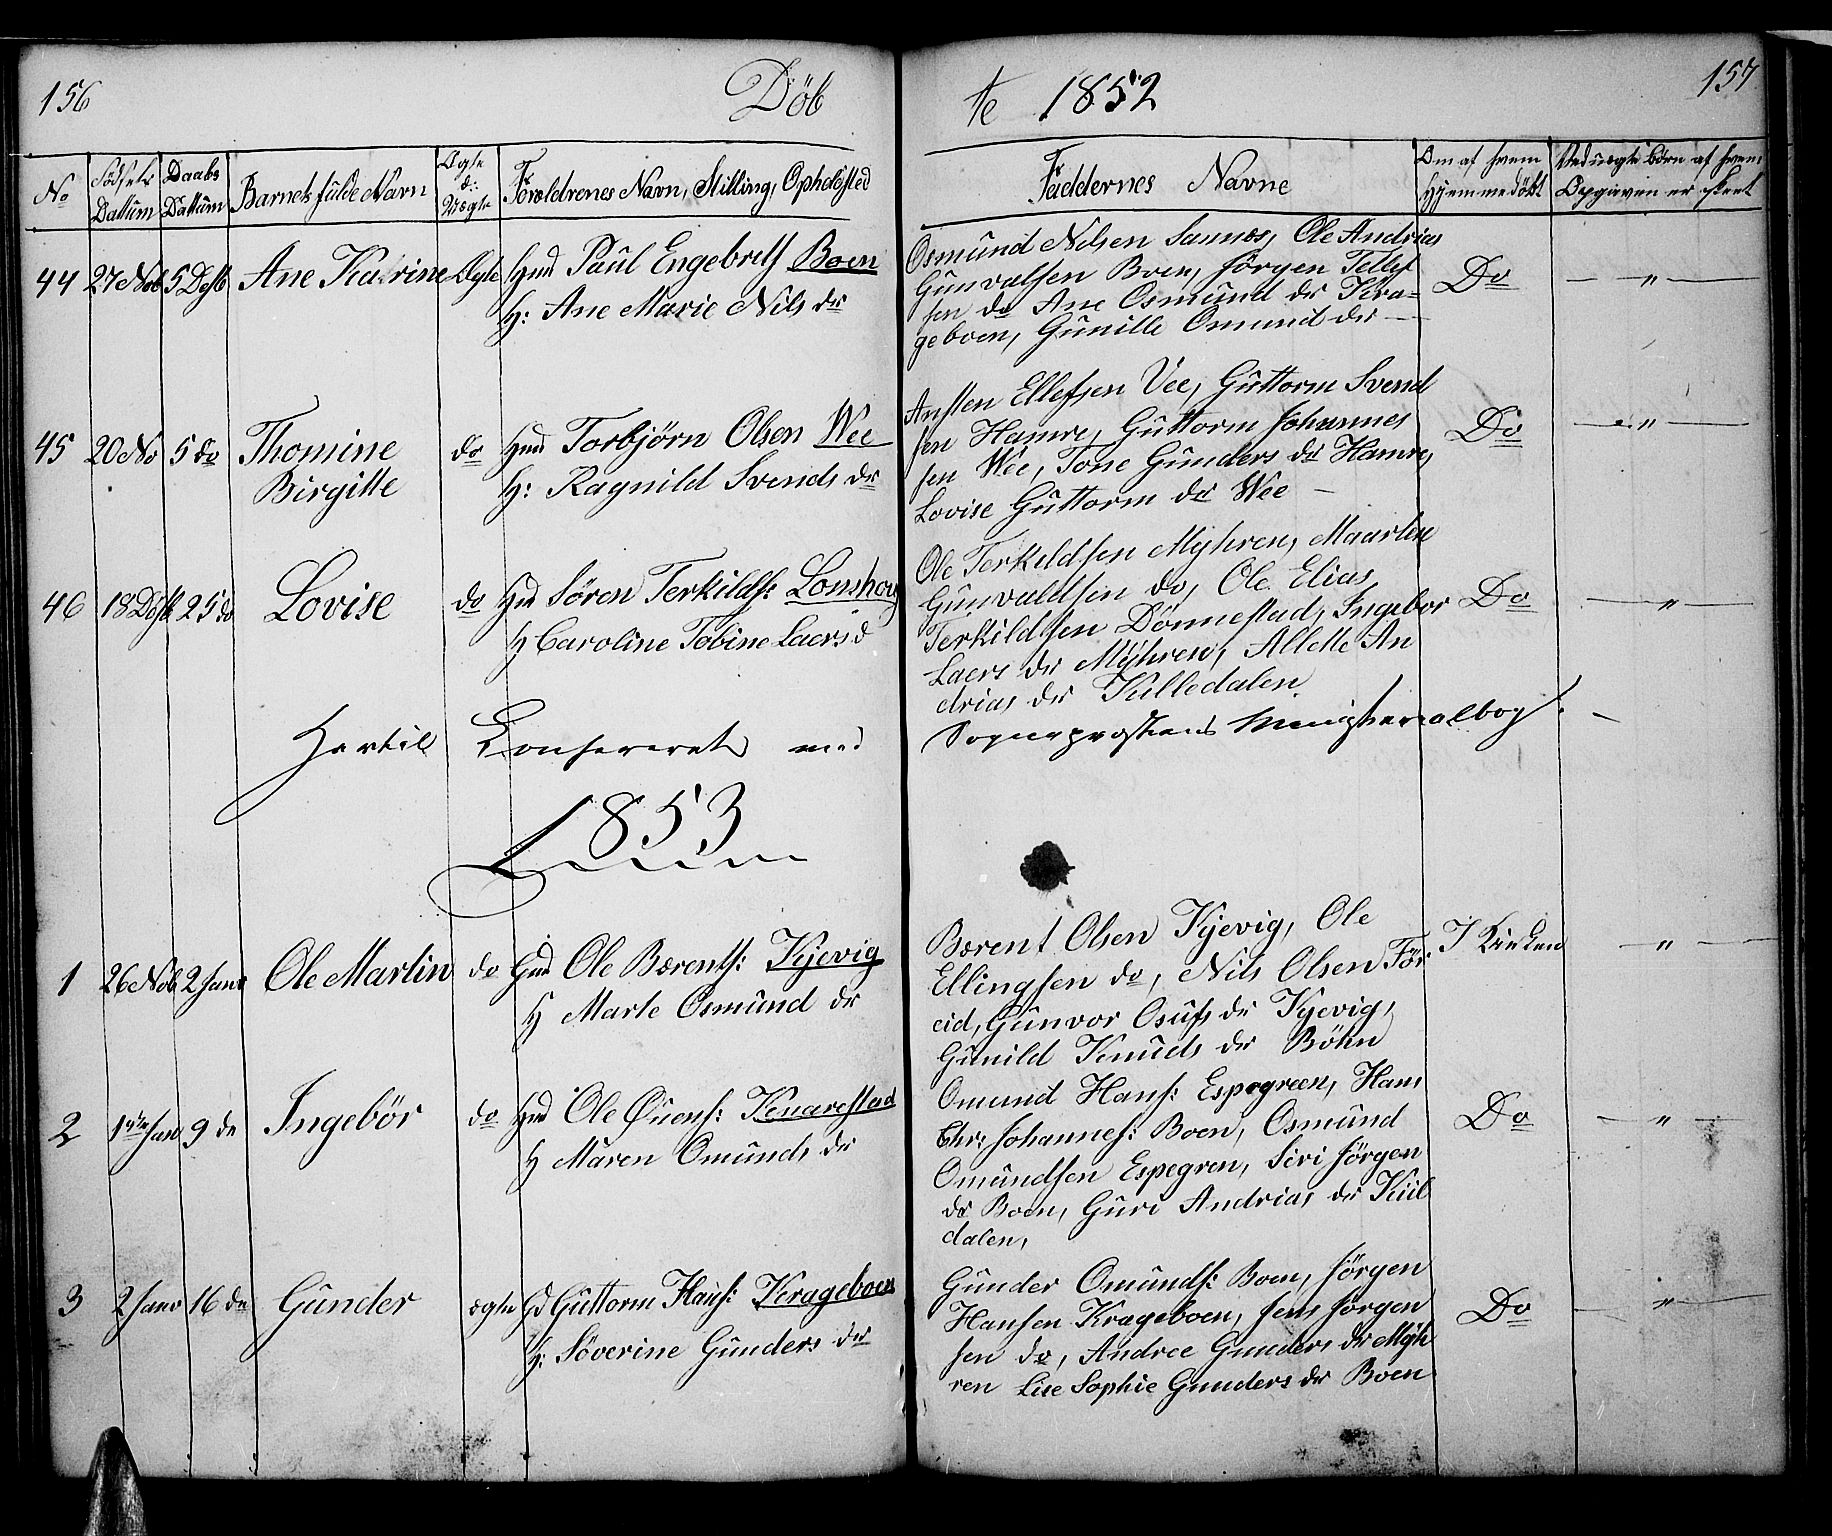 156
Döbte 1852
157
No
Födsels Dattum
Daabs Dattum
Barnets fulde Navn
Ægte el: Uægte
Forældrenes Navn, Stilling, Opholdsted
Faddernes Navne
Om af hvem Hjemmedöbt
Ved uægte börn af hvem Opgaven er skeet
44 27 Nob 5 Desb Ane Katrine Ægte Hmd Paul Engebrets Boen
H: Ane Marie Nils dr
Osmund Nilsen Sannes, Ole Andrias
Gunvalsen Boen, Jörgen Tellef
sen do Ane Osmund dr Kra-
geboen, Gunille Omund dr —
Do — " —
45 20 No 5 do Thomine
Birgitte
do Hmd Torbjörn Olsen Wee
H: Ragnild Svends dr
Ansten Ellefsen Vee, Guttorm Svend
sen Hamre, Guttorm Johannes
sen Wee, Tone Gunders dr Hamre,
Lovise Guttorm dr Wee —
Do — " —
46 18 Desb 25 do Lovise do Hm Sören Terkilds: Lonshoug
H Caroline Tobine Laers d
Ole Terkildsen Myhren, Maarten
Gunvaldsen do, Ole Elias
Terkildsen Dönnestad, Ingebor
Laers dr Myhren, Allette An
drias dr Kulledalen.
Do — " —
Hertil Konfereret med Sogneprestens Ministerialbog. —
1853
1 26 Nob 2 Janr Ole Martin do Hmd Ole Bærents: Kjevig
H Marte Osmund dr
Bærent Olsen Kjevig, Ole
Ellingsen do, Nils Olsen För
eid, Gunvor Osufs dr Kjevig,
Gunild Knuds dr Böhn
I Kirken — " —
2 1ste Janr 9 do Ingebör do Hmd Ole Ouens: Knarestad
H Maren Omunds dr
Omund Hans: Espegreen, Hans
Chr: Johannes: Boen, Osmund
Omundsen Espegren, Siri Jörgen
dr Boen, Guri Andrias dr Kul
dalen,
Do — " —
3 2 Janr 16 do Gunder ægte Gd Guttorm Hans: Krageboen
H: Söverine Gunders dr
Gunder Omunds: Boen, Jörgen
Hansen Krageboen, Jens Jörgen
sen do, Andree Gunders dr Myh
ren Lise Sophie Gunders dr Boen
Do — " —